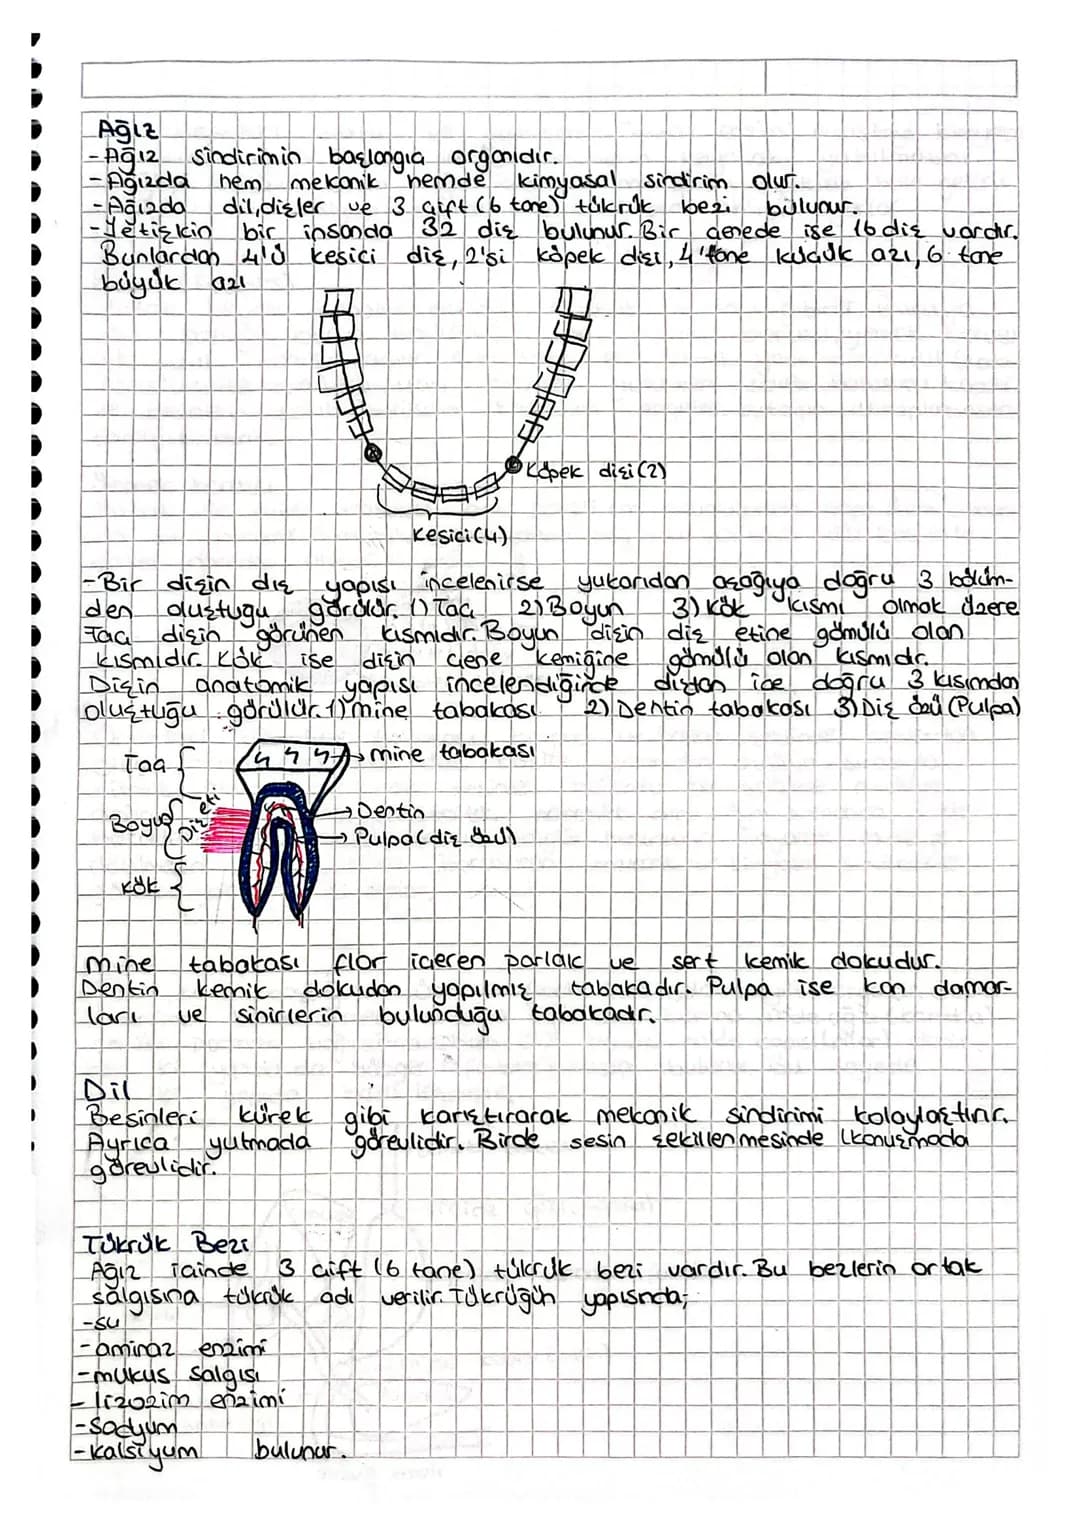 Ağız
-Ağız sindirimin başlangıç organıdır.
-Ağızda hem mekanik hemde kimyasal sindirim olur.
-Ağızda dil,dişler ve 3 çift (6 tane) tükrük bezi bulunur.
-Yetişkin bir insanda 32 diş bulunur. Bir çenede ise 16 diş vardır.
Bunlardan 4'ü kesici diş, 2'si köpek dişi, 4'tane küçük azı, 6 tane
büyük azı
Köpek dişi(2)
Kesici(4)
-Bir dişin dış yapısı incelenirse yukarıdan aşağıya doğru 3 bölüm-
den oluştugu görülür. 1) Taç 2) Boyun 3) kök kısmı olmak üzere
Taç dişin görünen kısmıdır. Boyun dişin diş etine gömülü olan
kısmıdır. Kök ise dişin çene kemiğine gömülü olan kısmıdır.
Dişin anatomik yapısı incelendiğinde dıştan içe doğru 3 kısımdan
oluştuğu görülür. 1) mine tabakası 2) Dentin tabakası 3) Diş özü (Pulpa)
Taç
mine tabakası
Boyun
Diş eti
Dentin
Pulpa(diş özü)
kök
mine tabakası flor içeren parlak ve sert kemik dokudur.
Dentin kemik dokudan yapılmış tabakadır. Pulpa ise kan damar-
ları ve sinirlerin bulunduğu tabakadır.
Dil
Besinleri kürek gibi karıştırarak mekanik sindirimi kolaylaştırır.
Ayrıca yutmada görevlidir. Birde sesin şekillenmesinde (konuşmada
görevlidir.
Tükrük Bezi
Ağız içinde 3 çift (6 tane) tükrük bezi vardır. Bu bezlerin ortak
salgısına tükrük adı verilir. Tükrüğün yapısında;
-su
-aminaz enzimi
-mukus salgısı
-lizozim enzimi
-sodyum
-kalsiyum bulunur.